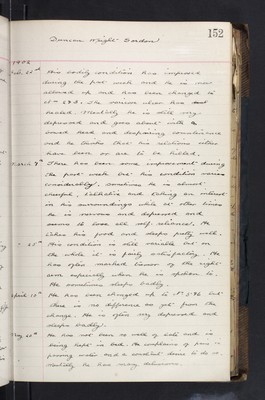 152
Duncan Wright Gordon
1906
His bodily condition has improved
during the past week and he is now
allowed up and has been changed to
The varicose ulcer has
healed. Mentally he is still very
depressed and goes about with
bowed head and despairing countenance
and he thinks that his relations either
have been or are to be killed.
March 7th There has been some improvement during
the past week but his condition varies
considerably. Sometimes he is almost
cheerful, talkative and taking an interest
in his surroundings while at other times
he is nervous and depressed and
seems to lose all self reliance. He
takes his food and sleeps pretty well.
His condition is still variable but on
the whole it is fairly satisfactory. He
has often marked tremor of the right
arm especially when he is spoken to.
He sometimes sleeps badly.
April He has been changed up to but
there is no difference as yet from the
change. He is often very depressed and
sleeps badly.
May He has not been so well of late and is
being kept in bed. He complains of pain in
passing water and
Mentally he has many delusions.